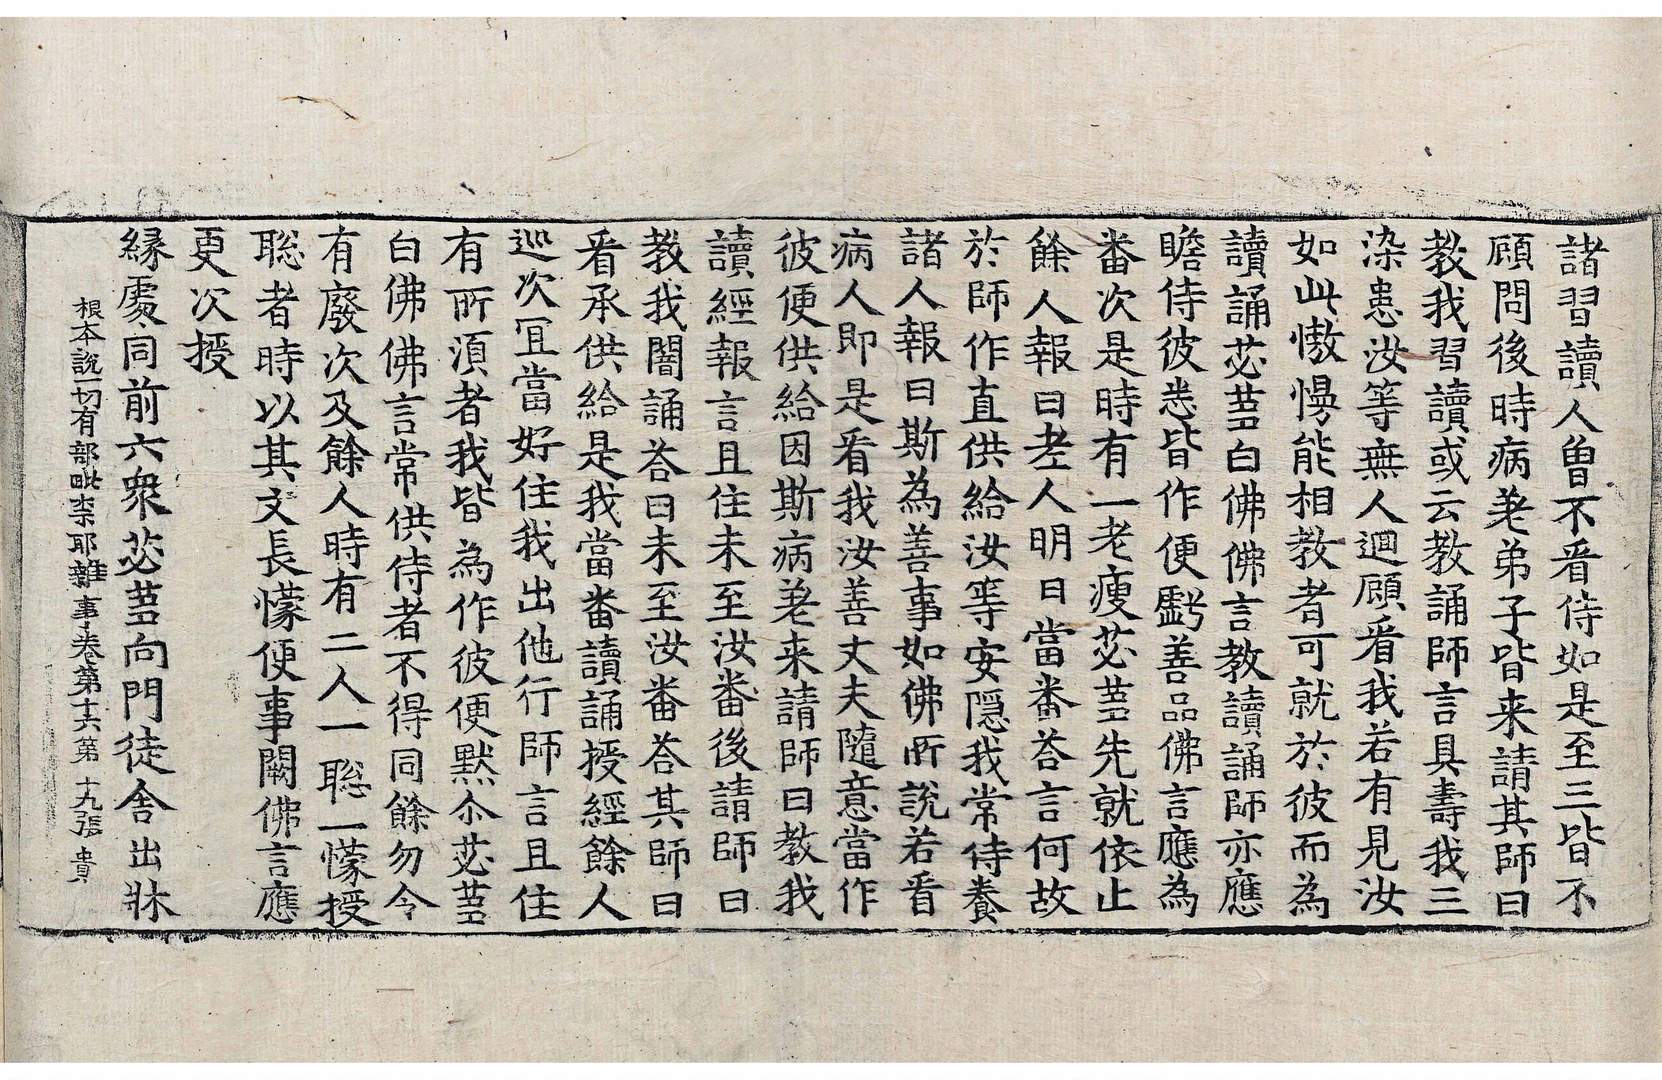 諸習讀人曾不看侍如是至三皆不
顧問後時病差弟子皆来請其師曰
教我習讀或云教誦師言具壽我三
染患汝等無人迴顧看我若有見汝
如此憿慢能相教者可就於彼而為
讀誦苾蒭白佛佛言教讀誦師亦應
瞻侍彼悉皆作便虧善品佛言應為
番次是時有一老瘦苾蒭先就依止
餘人報曰老人明日當番荅言何故
於師作直供給汝等安隱我常侍養
諸人報曰斯為善事如佛所說若看
病人即是看我汝善丈夫隨意當作
彼便供給因斯病差来請師曰教我
讀經報言且住未至汝番後請師曰
教我闇誦荅曰未至汝番荅其師曰
看承供給是我當番讀誦授經餘人
巡次冝當好住我出他行師言且住
有所湏者我皆為作彼便默尒苾蒭
白佛佛言常供侍者不得同餘勿令
有廢次及餘人時有二人一聡一懞授
聡者時以其文長懞便事闕佛言應
更次授
縁處同前六衆苾蒭向門徒舍出牀
根本說一切有部毗柰耶雜事卷第十六第十九張 貴